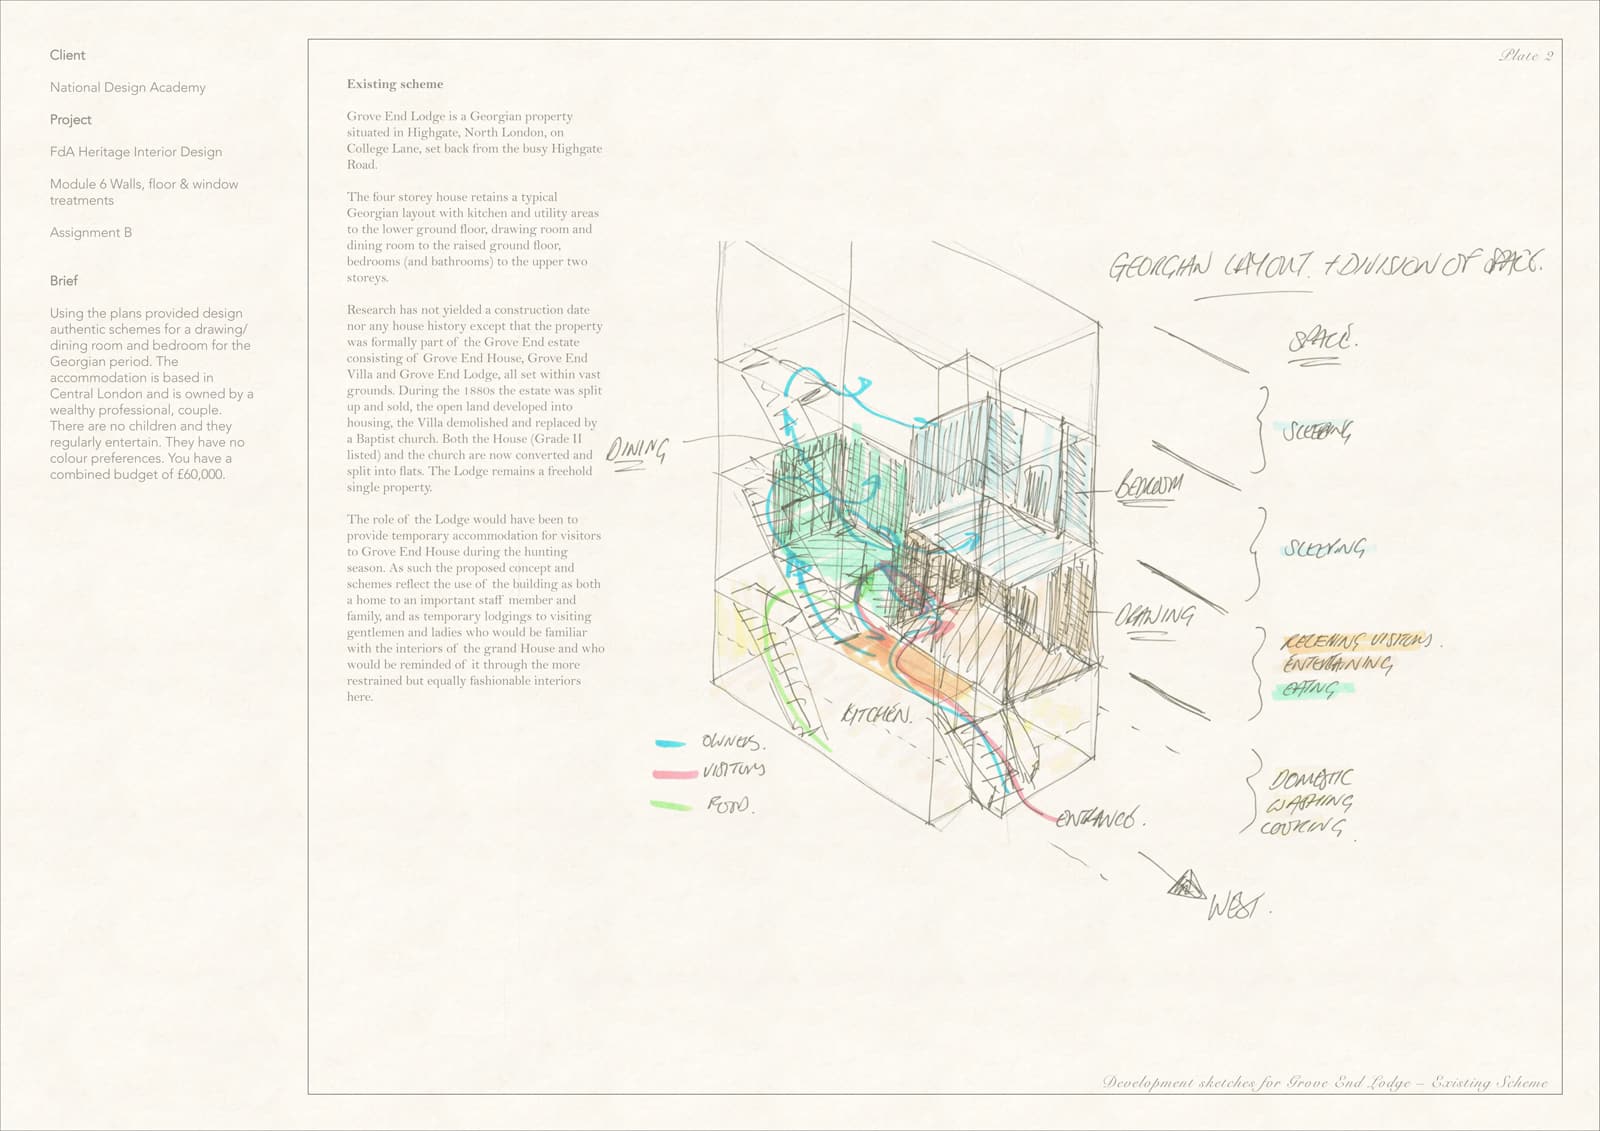 Client
National Design Academy
Project
FdA Heritage Interior Design
Module 6 Walls, floor & window
treatments
Assignment B
Brief
Using the plans provided design
authentic schemes for a drawing/
dining room and bedroom for the
Georgian period. The
accommodation is based in
Central London and is owned by a
wealthy professional, couple.
There are no children and they
regularly entertain. They have no
colour preferences. You have a
combined budget of £60,000.
Plate 2
Existing scheme
Grove End Lodge is a Georgian property
situated in Highgate, North London, on
College Lane, set back from the busy Highgate
Road.
The four storey house retains a typical
Georgian layout with kitchen and utility areas
to the lower ground floor, drawing room and
dining room to the raised ground floor,
bedrooms (and bathrooms) to the upper two
storeys.
Research has not yielded a construction date
nor any house history except that the property
was formally part of the Grove End estate
consisting of Grove End House, Grove End
Villa and Grove End Lodge, all set within vast
grounds. During the 1880s the estate was split
up and sold, the open land developed into
housing, the Villa demolished and replaced by
a Baptist church. Both the House (Grade II
listed) and the church are now converted and
split into flats. The Lodge remains a freehold
single property.
The role of the Lodge would have been to
provide temporary accommodation for visitors
to Grove End House during the hunting
season. As such the proposed concept and
schemes reflect the use of the building as both
a home to an important staff member and
family, and as temporary lodgings to visiting
gentlemen and ladies who would be familiar
with the interiors of the grand House and who
would be reminded of it through the more
restrained but equally fashionable interiors
here.
GEORGIAN LAYOUT + DIVISION OF SPACE.
SPACE.
SLEEPING
DINING
BEDROOM
SLEEPING
DRAWING
RECEIVING VISITORS.
ENTERTAINING
EATING
KITCHEN.
OWNERS.
VISITORS
FOOD.
DOMESTIC
WASHING
COOKING.
ENTRANCE.
WEST.
Development sketches for Grove End Lodge – Existing Scheme